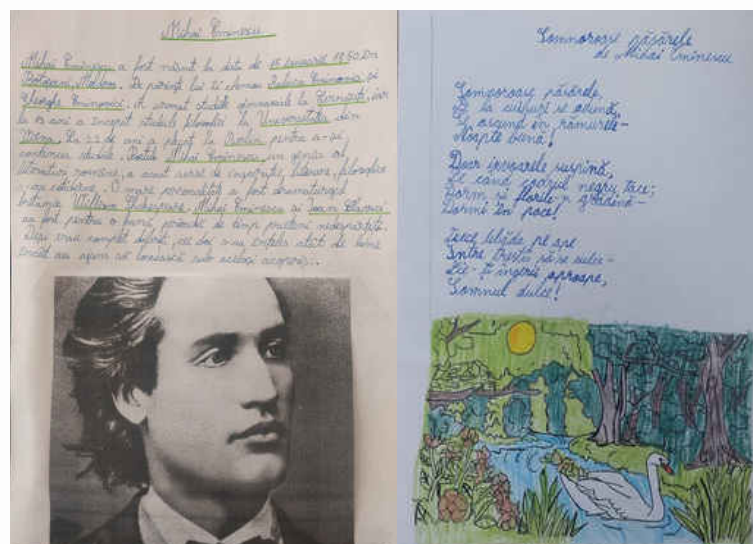 Mihai Eminescu
Mihai Eminescu a fost născut la data de 15 ianuarie 1850 în
Botoșani, Moldova. Pe părinții lui îi chemau Raluca Eminovici și
Gheorghe Eminovici. A urmat studiile gimnaziale la Cernăuți, iar
la 19 ani a început studiile filosofiei la Universitatea din
Viena. La 22 de ani a plecat la Berlin pentru a-și
continua studiile. Poetul Mihai Eminescu, un geniu al
literaturii române, a avut surse de inspirație, literare, filosofice
și cotidiene. O mare personalitate a fost dramaturgul
britanic William Shakespeare. Mihai Eminescu și Ioan Slavici
au fost pentru o bună perioadă de timp prieteni nedespărțiți.
Deși erau complet diferiți, cei doi s-au înțeles atât de bine
încât au ajuns să locuiască sub același acoperiș.
Somnoroase păsărele
de Mihai Eminescu
Somnoroase păsărele,
Pe la cuiburi se adună,
Se ascund în rămurele-
Noapte bună!
Doar izvoarele suspină,
Pe când codrul negru tace;
Dorm și florile-n grădină-
Dormi în pace!
Trece lebăda pe ape
Între trestii să se culce-
Fie-ți îngerii aproape,
Somnul dulce!